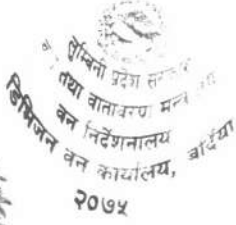 लुम्बिनी प्रदेश सरकार
तथा वातावरण
वन निर्देशनालय
डिभिजन वन कार्यालय, बर्दिया
२०७५